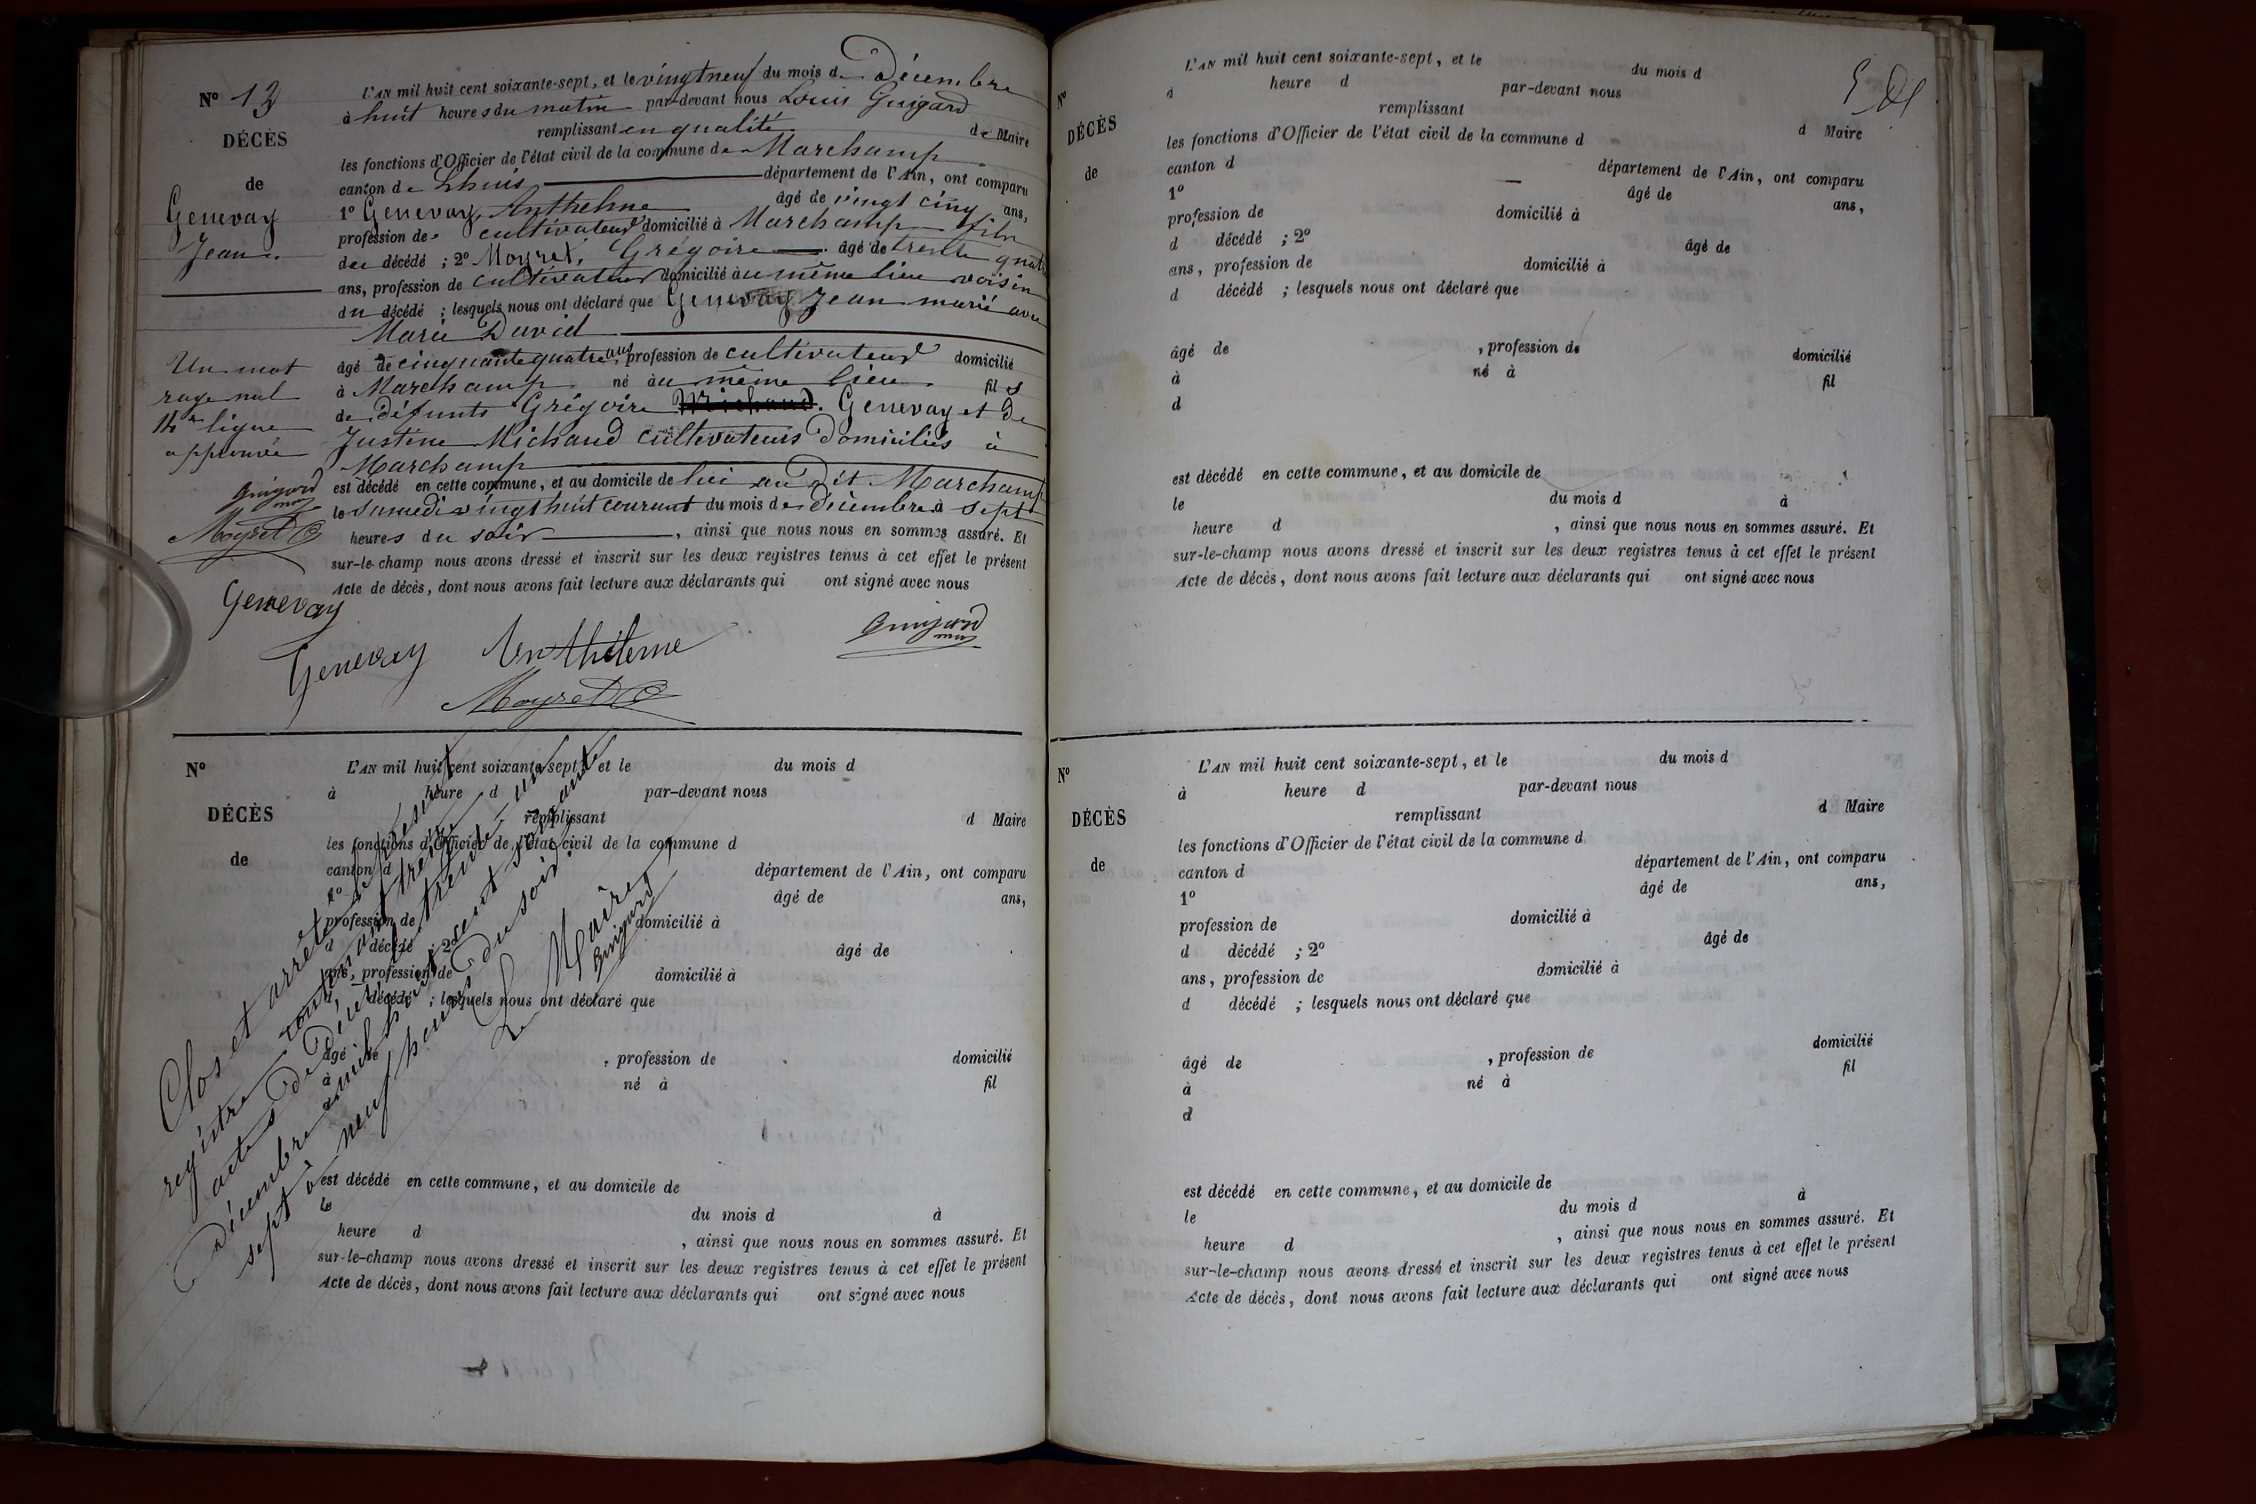 N° 13
DÉCÈS
de
Genevay
Jean.
L'AN mil huit cent soixante-sept, et le vingt neuf du mois de Décembre
à huit heures du matin par-devant nous Louis Guigard
remplissant en qualité de Maire
les fonctions d'Officier de l'état civil de la commune de Marchamp
canton de Lhuis département de l'Ain, ont comparu
1° Genevay Anthelme âgé de vingt cinq ans,
profession de cultivateur domicilié à Marchamp fils
du décédé ; 2° Moyret, Grégoire âgé de trente quatre
ans, profession de cultivateur domicilié au même lieu voisin
du décédé ; lesquels nous ont déclaré que Genevay Jean marié avec
Marie David
âgé de cinquante quatre ans profession de cultivateur domicilié
à Marchamp né au même lieu fils
de défunts Grégoire Michaud. Genevay et de
Justine Michaud cultivateurs domiciliés à
Marchamp
est décédé en cette commune, et au domicile de lui au dit Marchamp
le Samedi vingt huit courant du mois de décembre à sept
heures du soir , ainsi que nous nous en sommes assuré. Et
sur-le-champ nous avons dressé et inscrit sur les deux registres tenus à cet effet le présent
Acte de décès, dont nous avons fait lecture aux déclarants qui ont signé avec nous
Un mot
rayé nul
14e ligne
approuvé
Guigard
Moyret G
Genevay
Genevay Anthelme
Guigard
Moyret G
N°
DÉCÈS
de
L'AN mil huit cent soixante-sept, et le du mois d
à heure d par-devant nous
remplissant d Maire
les fonctions d'Officier de l'état civil de la commune d
canton d département de l'Ain, ont comparu
1° âgé de ans,
profession de domicilié à
d décédé ; 2° âgé de
ans, profession de domicilié à
d décédé ; lesquels nous ont déclaré que
âgé de , profession de domicilié
à né à fil
d
est décédé en cette commune, et au domicile de
le du mois d à
heure d , ainsi que nous nous en sommes assuré. Et
sur-le-champ nous avons dressé et inscrit sur les deux registres tenus à cet effet le présent
Acte de décès, dont nous avons fait lecture aux déclarants qui ont signé avec nous
Clos et arrêté le présent
registre contenant treize
actes de Décès le trente un
Décembre mil huit cent soixante
sept à neuf heures du soir.
Le Maire
Guigard
N°
DÉCÈS
de
L'AN mil huit cent soixante-sept, et le du mois d
à heure d par-devant nous
remplissant d Maire
les fonctions d'Officier de l'état civil de la commune d
canton d département de l'Ain, ont comparu
1° âgé de ans,
profession de domicilié à
d décédé ; 2° âgé de
ans, profession de domicilié à
d décédé ; lesquels nous ont déclaré que
âgé de , profession de domicilié
à né à fil
d
est décédé en cette commune, et au domicile de
le du mois d à
heure d , ainsi que nous nous en sommes assuré. Et
sur-le-champ nous avons dressé et inscrit sur les deux registres tenus à cet effet le présent
Acte de décès, dont nous avons fait lecture aux déclarants qui ont signé avec nous
N°
DÉCÈS
de
L'AN mil huit cent soixante-sept, et le du mois d
à heure d par-devant nous
remplissant d Maire
les fonctions d'Officier de l'état civil de la commune d
canton d département de l'Ain, ont comparu
1° âgé de ans,
profession de domicilié à
d décédé ; 2° âgé de
ans, profession de domicilié à
d décédé ; lesquels nous ont déclaré que
âgé de , profession de domicilié
à né à fil
d
est décédé en cette commune, et au domicile de
le du mois d à
heure d , ainsi que nous nous en sommes assuré. Et
sur-le-champ nous avons dressé et inscrit sur les deux registres tenus à cet effet le présent
Acte de décès, dont nous avons fait lecture aux déclarants qui ont signé avec nous